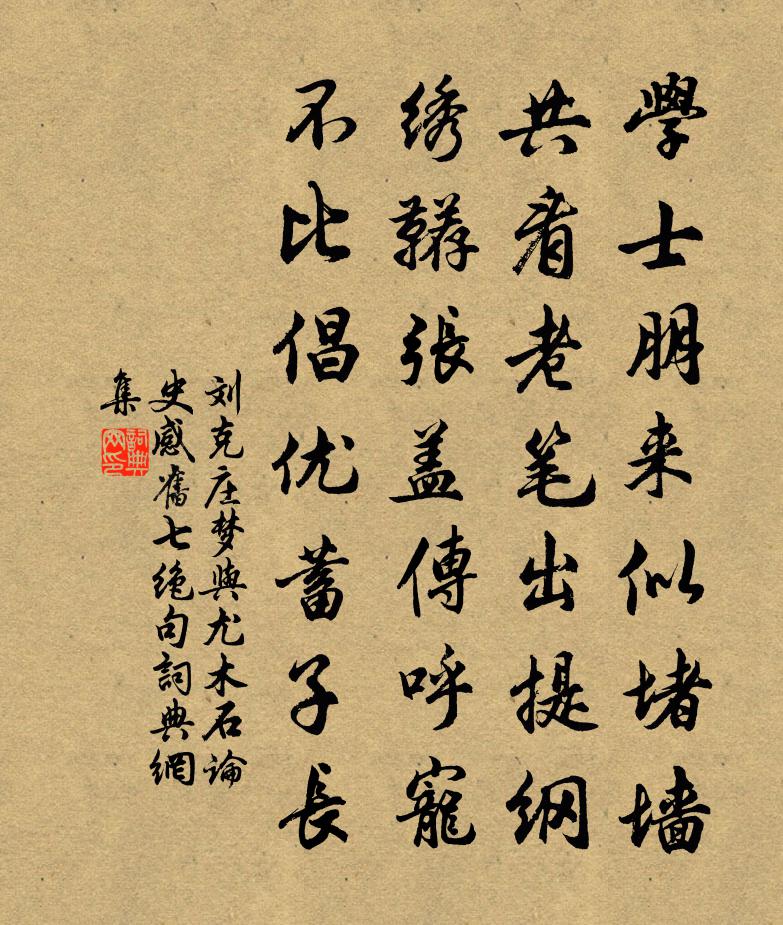 學士朋来似堵墙
共看老笔出提纲
绣鞯張盖傳呼寵
不比倡优蓄子長
刘克庄梦與尤木石論
史感舊七绝句詞典網
集
詞典网印